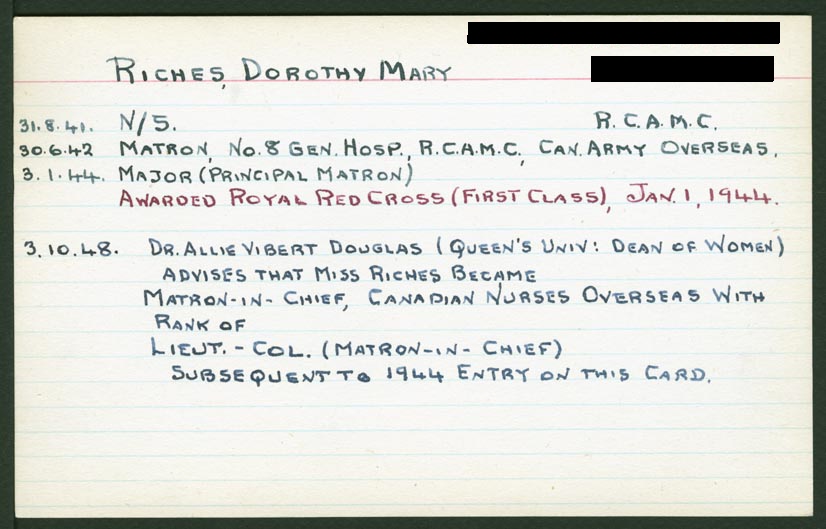 RICHES, DOROTHY MARY
31.8.41. N/S. R.C.A.M.C.
30.6.42 MATRON, No. 8 GEN. HOSP., R.C.A.M.C., CAN. ARMY OVERSEAS.
3.1.44. MAJOR (PRINCIPAL MATRON)
AWARDED ROYAL RED CROSS (FIRST CLASS), JAN. 1, 1944.
3.10.48. DR. ALLIE VIBERT DOUGLAS (QUEEN'S UNIV: DEAN OF WOMEN)
ADVISES THAT MISS RICHES BECAME
MATRON-IN-CHIEF, CANADIAN NURSES OVERSEAS WITH
RANK OF
LIEUT.-COL. (MATRON-IN-CHIEF)
SUBSEQUENT TO 1944 ENTRY ON THIS CARD.